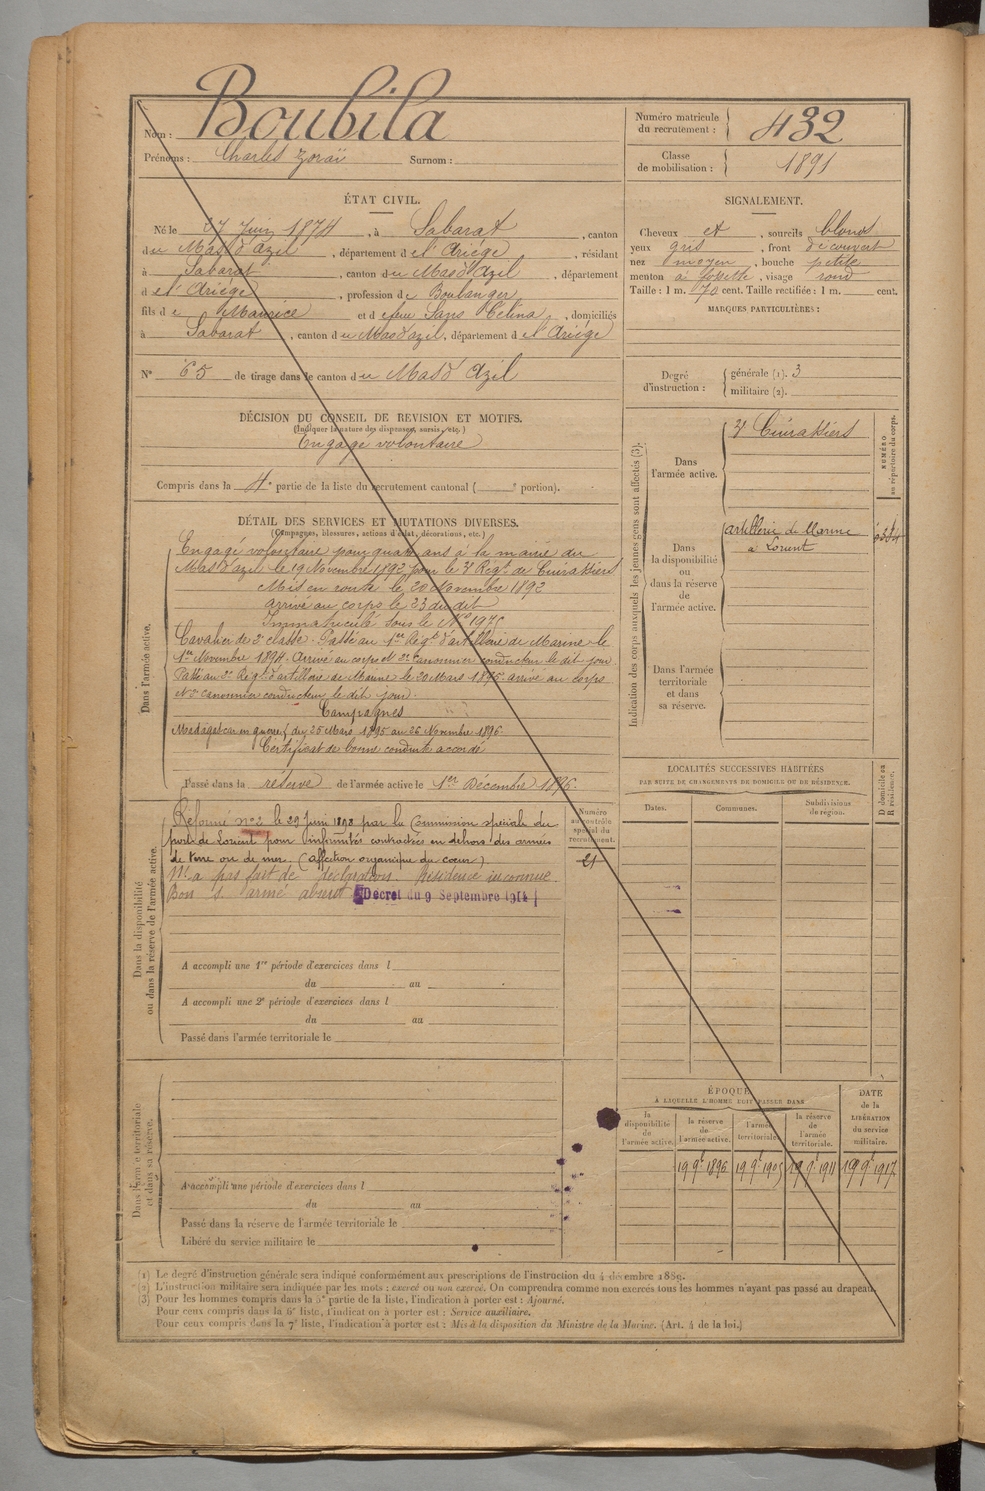 Nom : Boubila
Prénoms : Charles Zoraï Surnom :
Numéro matricule du recrutement : 432
Classe de mobilisation : 1891
ÉTAT CIVIL.
Né le 27 Juin 1874, à Sabarat, canton
du Mas d'azil, département de l'Ariège, résidant
à Sabarat, canton du Mas d'Azil, département
de l'Ariège, profession de Boulanger
fils de Maurice et de feue Sans Célina, domiciliés
à Sabarat, canton du Mas d'azil, département de l'Ariège
N° 65 de tirage dans le canton du Mas d'Azil
SIGNALEMENT.
Cheveux et, sourcils blonds
yeux gris, front découvert
nez moyen, bouche petite
menton à fossette, visage rond
Taille : 1 m. 70 cent. Taille rectifiée : 1 m. cent.
MARQUES PARTICULIÈRES :
Degré d'instruction : générale (1). 3
militaire (2).
DÉCISION DU CONSEIL DE REVISION ET MOTIFS.
(Indiquer la nature des dispenses, sursis, etc.)
Engagé volontaire
Compris dans la 4e partie de la liste du recrutement cantonal ( portion).
DÉTAIL DES SERVICES ET MUTATIONS DIVERSES.
(Campagnes, blessures, actions d'éclat, décorations, etc.)
Dans l'armée active.
Engagé volontaire pour quatre ans à la mairie du
Mas d'azil le 19 Novembre 1892 pour le 3e Régt. de Cuirassiers
Mis en route le 20 Novembre 1892
arrivé au corps le 23 du dit
Immatriculé sous le No 1975
Cavalier de 2e classe. Passé au 1er Régt. d'artillerie de Marine le
1er Novembre 1894. Arrivé au corps et 2e Canonnier conducteur le dit jour
Passé au 2e Régt. d'artillerie de Marine le 20 Mars 1895 arrivé au corps
et 2e canonnier conducteur le dit jour.
Campagnes
Madagascar en guerre du 25 Mars 1895 au 26 Novembre 1896.
Certificat de bonne conduite accordé
Passé dans la réserve de l'armée active le 1er Décembre 1896.
Indication des corps auxquels les jeunes gens sont affectés (3).
NUMÉRO au répertoire du corps.
Dans l'armée active.
3e Cuirassiers
Dans la disponibilité ou dans la réserve de l'armée active.
artillerie de Marine
à Lorient
Dans l'armée territoriale et dans sa réserve.
LOCALITÉS SUCCESSIVES HABITÉES
PAR SUITE DE CHANGEMENTS DE DOMICILE OU DE RÉSIDENCE.
Dates.
Communes.
Subdivisions de région.
D domicile ou R résidence.
Dans la disponibilité ou dans la réserve de l'armée active.
Numéro au contrôle spécial du recrutement.
21
Réformé no 2 le 29 Juin 1898 par la Commission spéciale du
port de Lorient pour infirmités contractées en dehors des armées
de terre ou de mer. (affection organique du coeur).
N'a pas fait de déclaration. Résidence inconnue
Bon s. armé absent Décret du 9 Septembre 1914
A accompli une 1re période d'exercices dans l
du au
A accompli une 2e période d'exercices dans l
du au
Passé dans l'armée territoriale le
Dans l'armée territoriale et dans sa réserve.
A accompli une période d'exercices dans l
du au
Passé dans la réserve de l'armée territoriale le
Libéré du service militaire le
ÉPOQUE
À LAQUELLE L'HOMME DOIT PASSER DANS
la disponibilité de l'armée active.
la réserve de l'armée active.
l'armée territoriale.
la réserve de l'armée territoriale.
DATE de la LIBÉRATION du service militaire.
19 9e 1896 19 9e 1905 19 9e 1911 19 9e 1917
(1) Le degré d'instruction générale sera indiqué conformément aux prescriptions de l'instruction du 4 décembre 1889.
(2) L'instruction militaire sera indiquée par les mots : exercé ou non exercé. On comprendra comme non exercés tous les hommes n'ayant pas passé au drapeau.
(3) Pour les hommes compris dans la 5e partie de la liste, l'indication à porter est : Ajourné.
Pour ceux compris dans la 6e liste, l'indication à porter est : Service auxiliaire.
Pour ceux compris dans la 7e liste, l'indication à porter est : Mis à la disposition du Ministre de la Marine. (Art. 4 de la loi.)